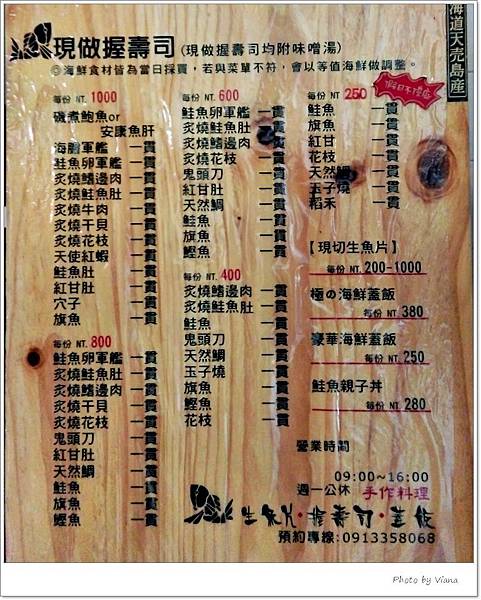 現做握壽司(現做握壽司均附味噌湯)
◎海鮮食材皆為當日採買，若與菜單不符，會以等值海鮮做調整。
海道天売島産
每份 NT. 1000
磯煮鮑魚or
安康魚肝
海膽軍艦 一貫
鮭魚卵軍艦 一貫
炙燒鰭邊肉 一貫
炙燒鮭魚肚 一貫
炙燒牛肉 一貫
炙燒干貝 一貫
炙燒花枝 一貫
天使紅蝦 一貫
鮭魚肚 一貫
紅甘肚 一貫
穴子 一貫
旗魚 一貫
每份 NT. 800
鮭魚卵軍艦 一貫
炙燒鮭魚肚 一貫
炙燒鰭邊肉 一貫
炙燒干貝 一貫
炙燒花枝 一貫
鬼頭刀 一貫
紅甘肚 一貫
天然鯛 一貫
鮭魚 一貫
旗魚 一貫
鰹魚 一貫
每份 NT. 600
鮭魚卵軍艦 一貫
炙燒鮭魚肚 一貫
炙燒鰭邊肉 一貫
炙燒花枝 一貫
鬼頭刀 一貫
紅甘肚 一貫
天然鯛 一貫
鮭魚 一貫
旗魚 一貫
鰹魚 一貫
每份 NT. 400
炙燒鰭邊肉 一貫
炙燒鮭魚肚 一貫
鮭魚 一貫
鬼頭刀 一貫
天然鯛 一貫
玉子燒 一貫
旗魚 一貫
鰹魚 一貫
花枝 一貫
每份 NT 250
假日不供應
鮭魚 一貫
旗魚 一貫
紅甘 一貫
花枝 一貫
天然鯛 一貫
玉子燒 一貫
稻禾 一貫
【現切生魚片】
每份 NT. 200-1000
極の海鮮蓋飯
每份 NT. 380
豪華海鮮蓋飯
每份 NT 250
鮭魚親子丼
每份 NT. 280
營業時間
09:00~16:00
週一公休 手作料理
生魚片·握壽司·蓋飯
預約專線:0913358068
Photo by Viana